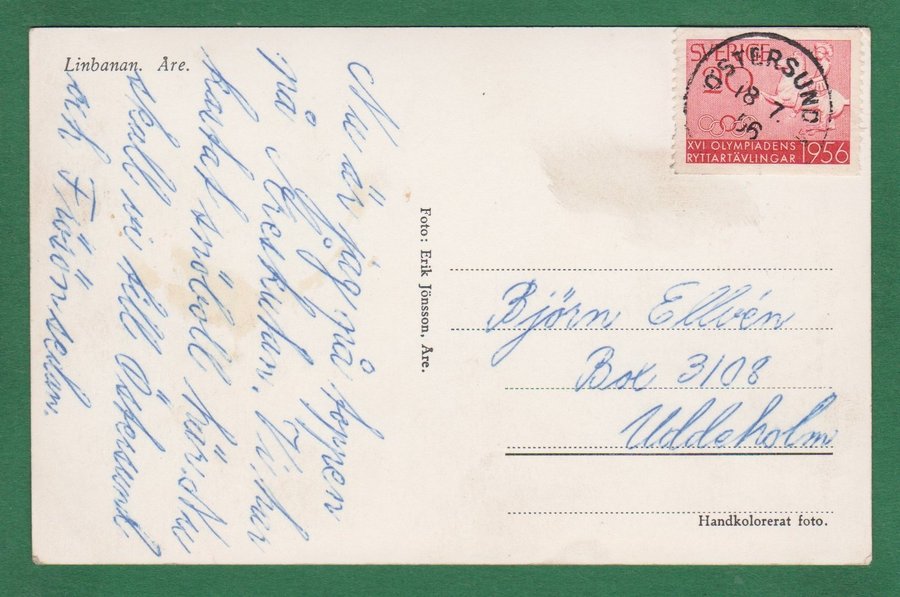 Linbanan. Åre.
Nu är jag på toppen
på Åreskutan. Vi har
kastat snöboll här. Nu
skall vi till Östersund
och Frösön sedan.
Foto: Erik Jönsson, Åre.
SVERIGE
20
XVI OLYMPIADENS
RYTTARTÄVLINGAR 1956
ÖSTERSUND
18 7
56
Björn Ellvén
Box 3108
Uddeholm
Handkolorerat foto.